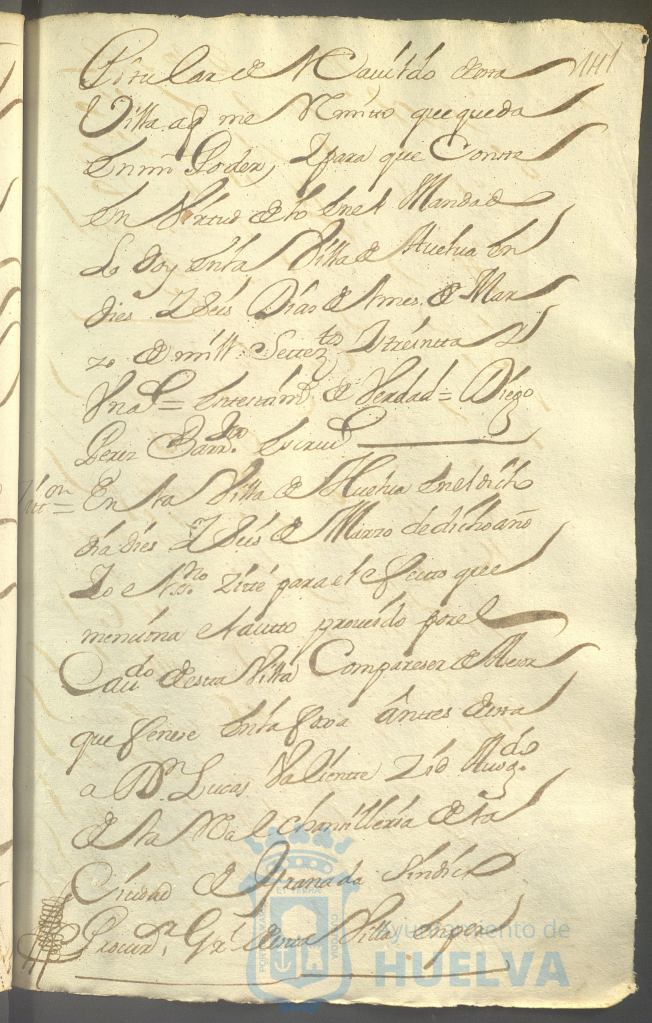 141
Titular de el Cavildo desta
Villa aq me Remito que queda
En mi Poder, Y para que Conste
En Virtud de lo En el Mandado
Lo doy En la Villa de Huelva En
dies Y Seis Dias de el mes de Mar
zo de mill Settetos Y treinta Y
Una = En testam de Verdad = Diego
Perez Escrivo
En la Villa de Huelva En el dicho
dia dies Y Seis de Marzo de dicho año
Yo el Ssno Zité para el efecto que
menciona el autto proveido por el
Cavdo desta Villa Compareser de
que fenese En la foxa Antes desta
a Dn Lucas Valiente Zid Avogdo
de la Real Chanzilleria de la
Ciudad de Granada Sindico
Procurr Grl desta Villa En per
Ayuntamiento de
HUELVA